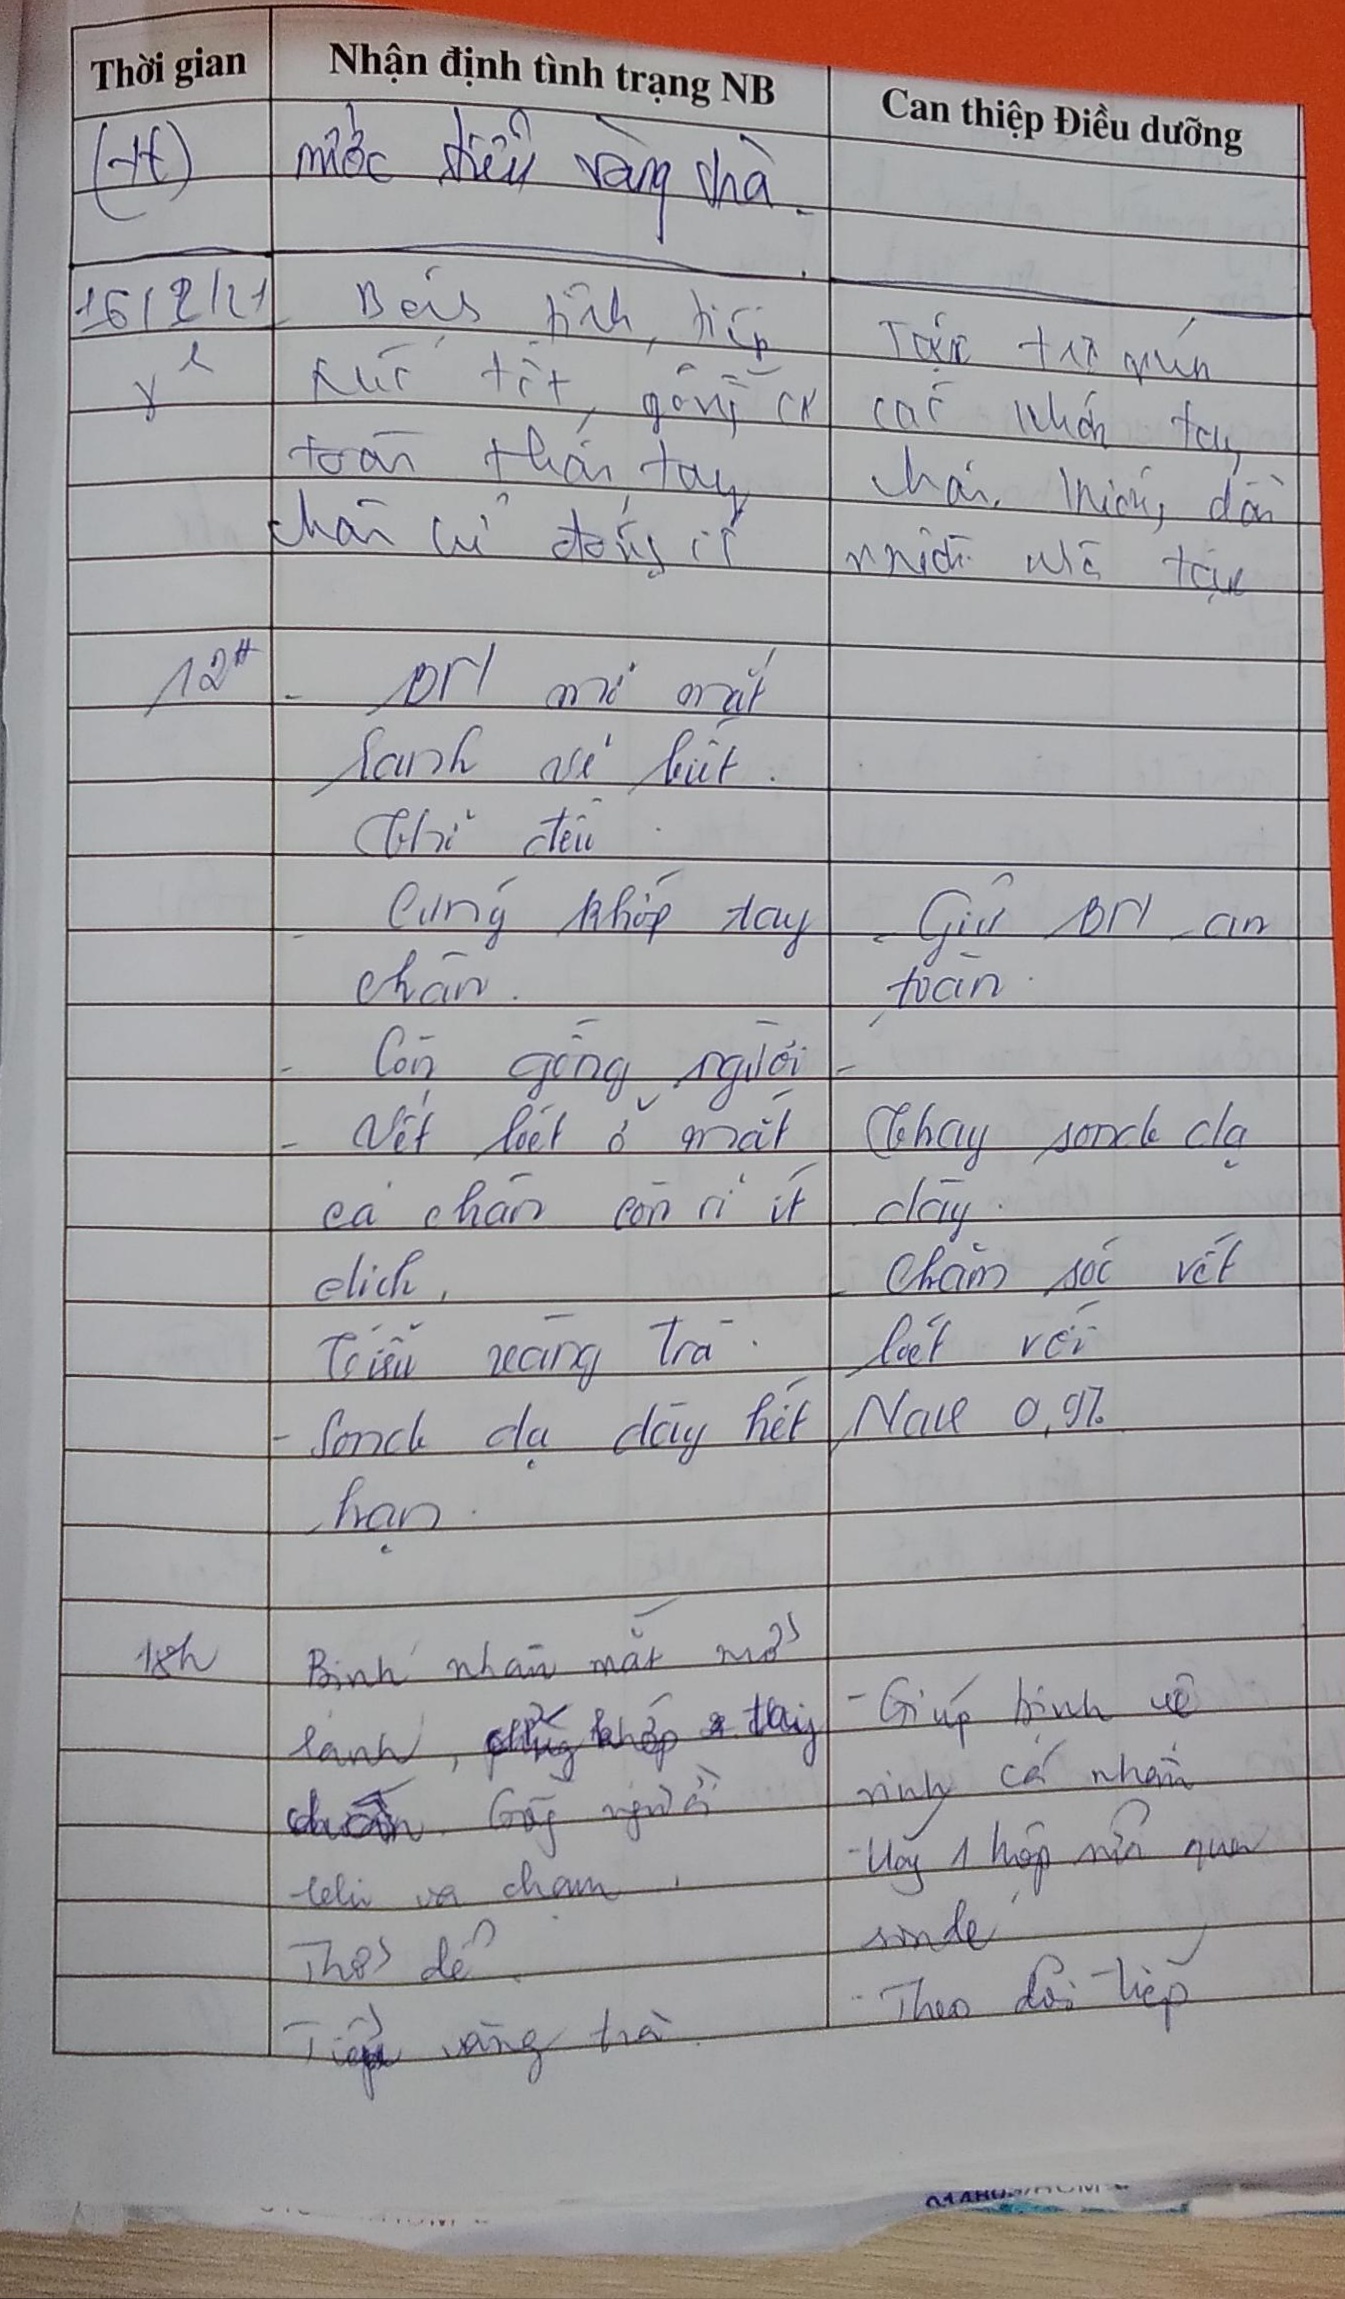 Thời gian
Nhận định tình trạng NB
Can thiệp Điều dưỡng
(-tt)
nước tiểu vàng trà.
16/2/21
tỉnh, tiếp
tốt, gồng
toàn thân, tay
chân cử động
các khớp tay
chân
12H
- BN mở mắt
lanh
Thở đều
- Cứng khớp tay
chân.
- Còn gồng người
- Vết loét ở mắt
cá chân còn rỉ ít
dịch,
Tiểu vàng trà.
- Sonde dạ dày hết
hạn.
- Giữ BN an
toàn.
-
Thay sonde dạ
dày.
Chăm sóc vết
loét với
Nacl 0,9%
18h
Bệnh nhân mắt mở
lanh, cứng khớp tay
chân. Gồng người
khi va chạm.
Thở dễ
Tiểu vàng trà
- Giúp bệnh vệ
sinh cá nhân
- Uống 1 hộp sữa qua
sonde
- Theo dõi tiếp